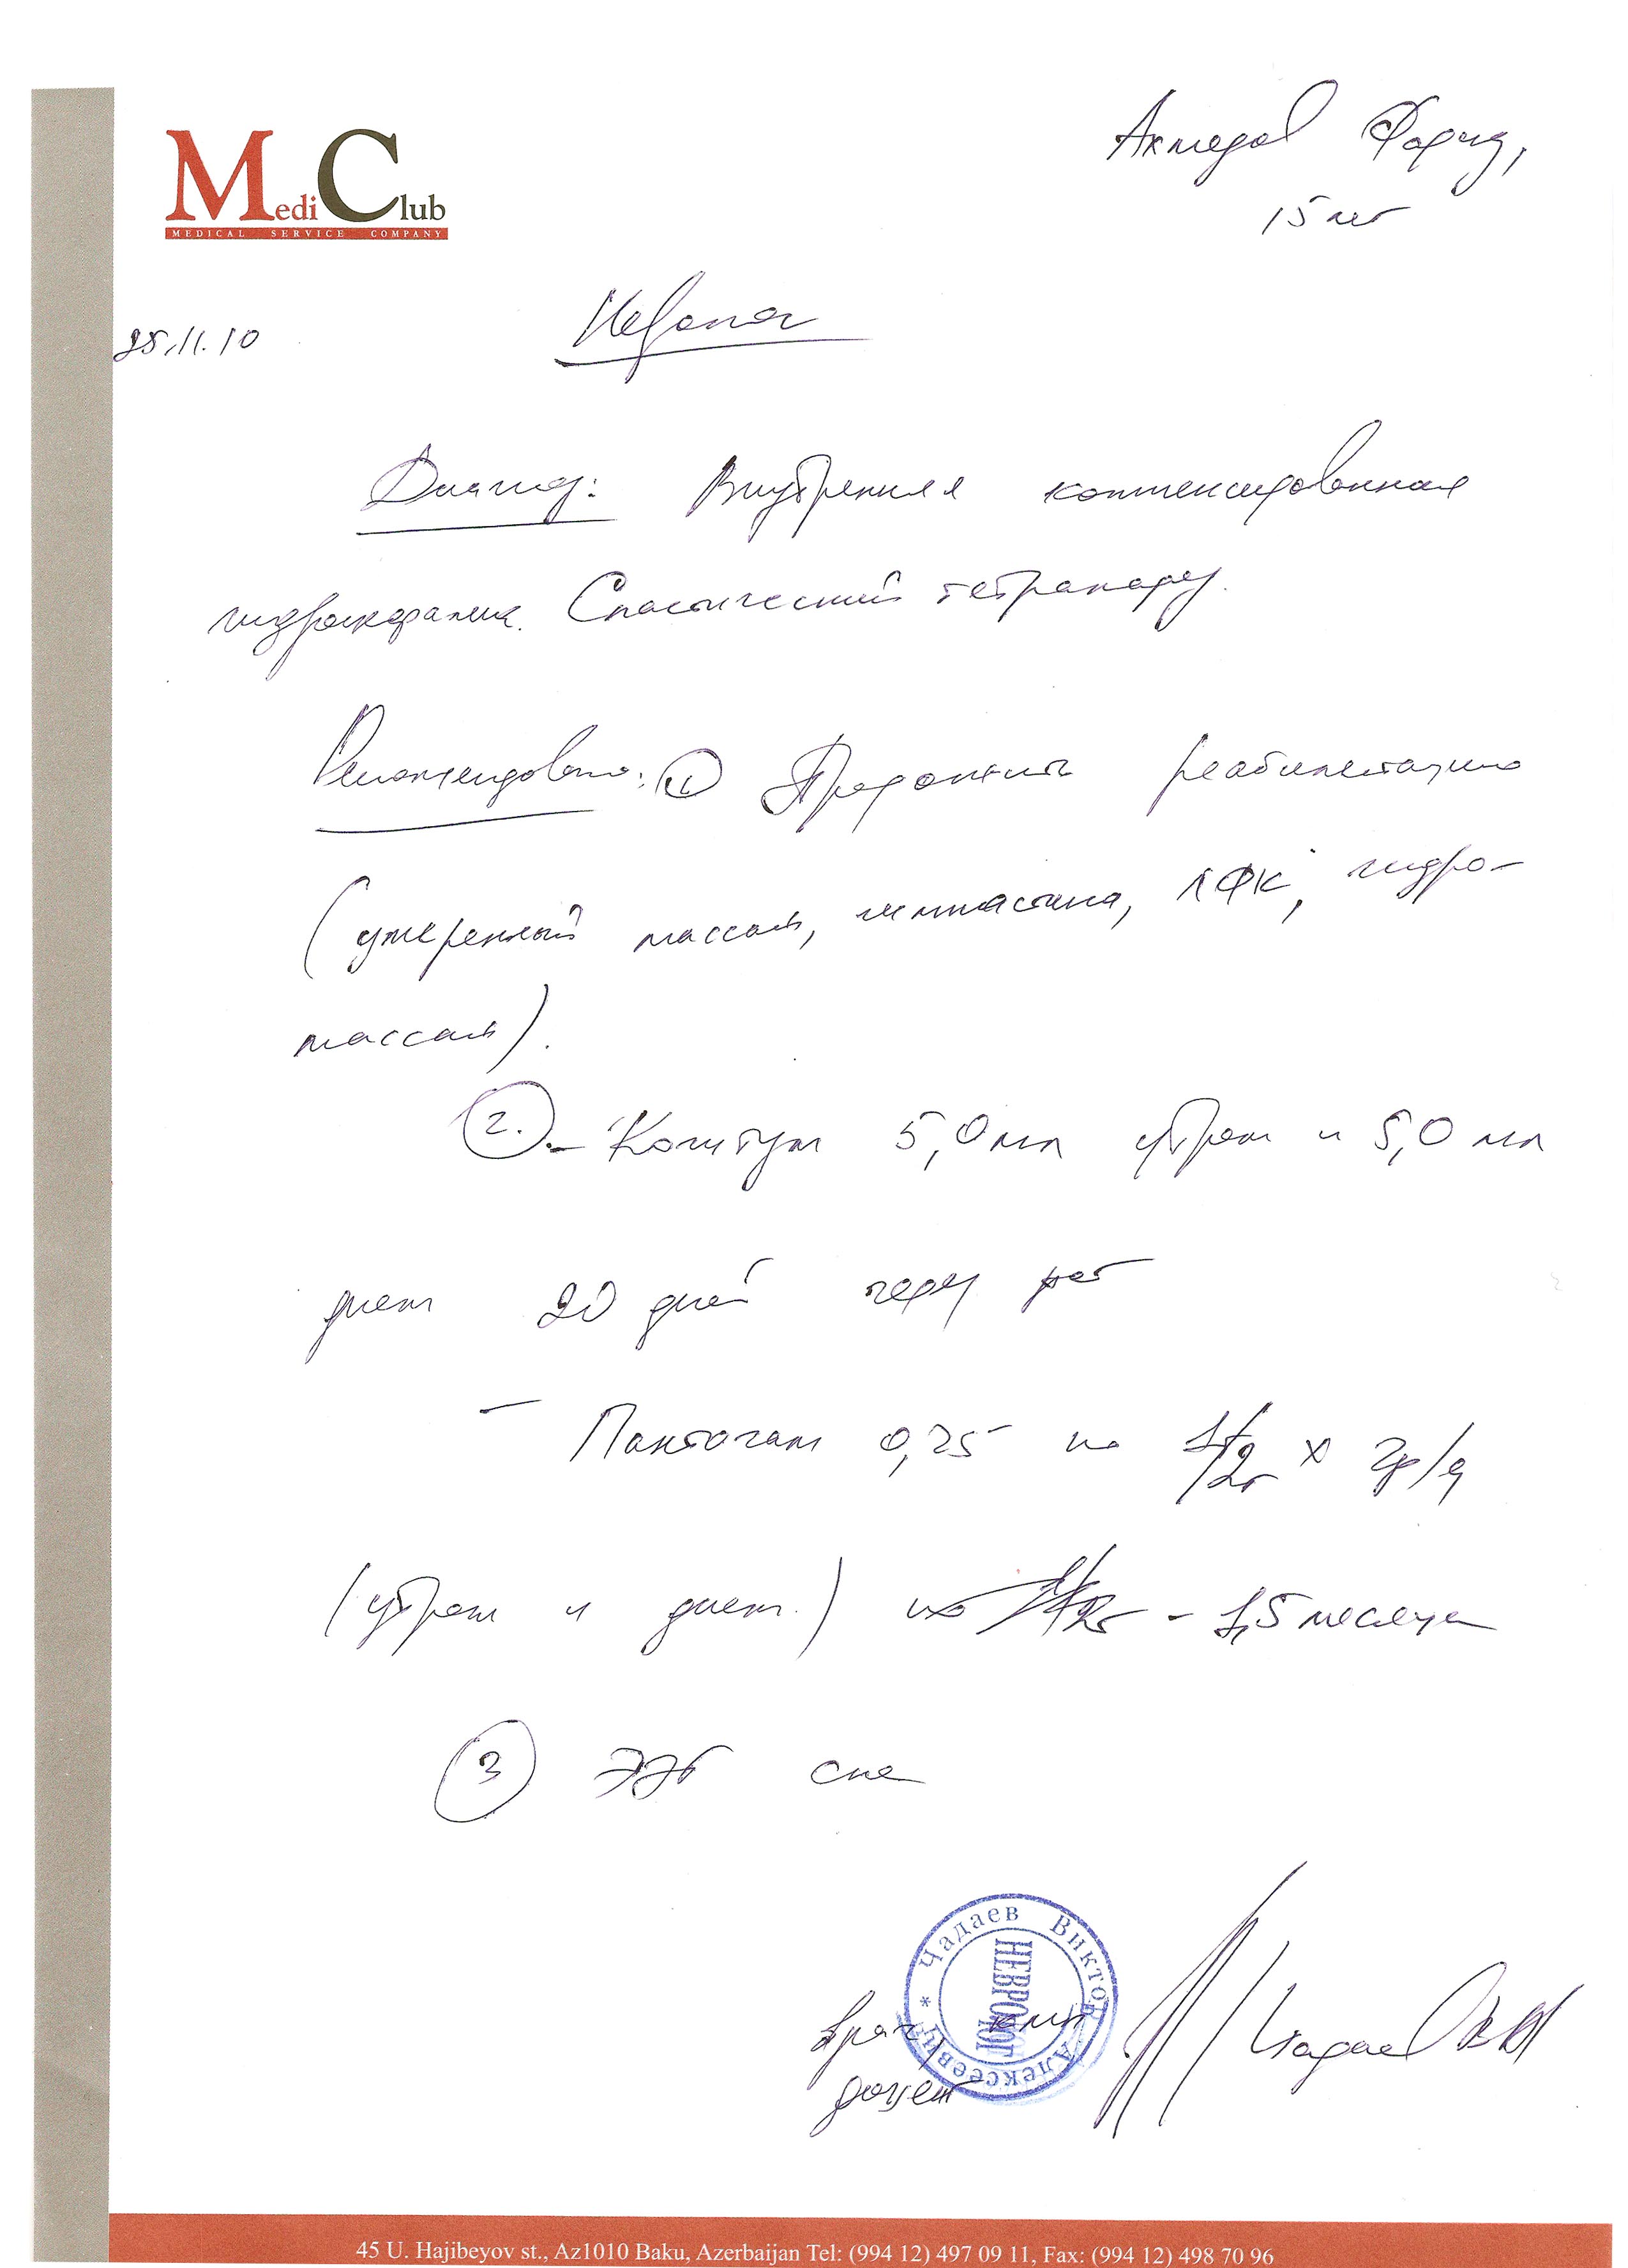 Ахмедов Фарид,
15 лет
MediClub
MEDICAL SERVICE COMPANY
25.11.10
Диагноз: Внутренняя компенсированная
гидроцефалия. Спастический тетрапарез.
Рекомендовано: 1 Продолжить реабилитацию
(умеренный массаж, гимнастика, ЛФК, гидро-
массаж).
2. - Когитум 5,0 мл утром и 5,0 мл
днем 20 дней через
- Пантогам 0,25 по 1/2 т x 2р/д
(утром и днем) - 1,5 месяца
3 ЭЭГ сна
Чадаев Виктор Алексеевич *
НЕВРОЛОГ
Врач, кмн
доцент
Чадаев ВА
45 U. Hajibeyov st., Az1010 Baku, Azerbaijan Tel: (994 12) 497 09 11, Fax: (994 12) 498 70 96